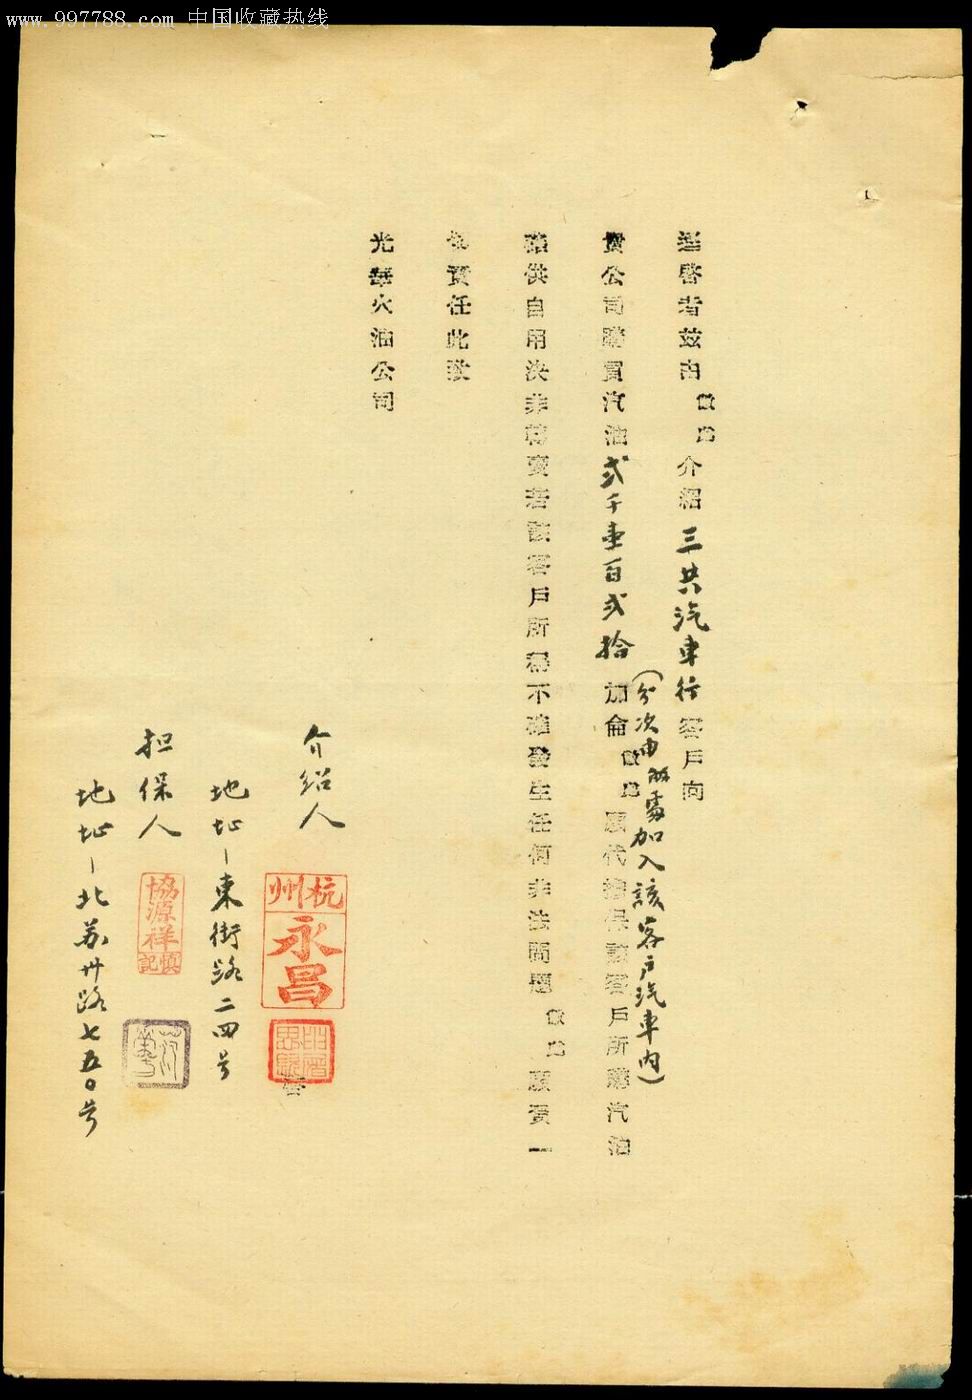 www.997788.com 中国收藏热线
逕啓者茲由敝處介紹三共汽車行客戶向
貴公司購買汽油弍千壹百弍拾加侖敝處願代擔保該客戶所購汽油
(分次由敝處加入該客戶汽車內)
確供自用決非轉賣若該客戶所稱不確發生任何非法問題敝處願負一
切責任此致
光華火油公司
介绍人
杭州
永昌
地址-東街路二四号
担保人
協源祥
慎記
地址-北苏州路七五0号